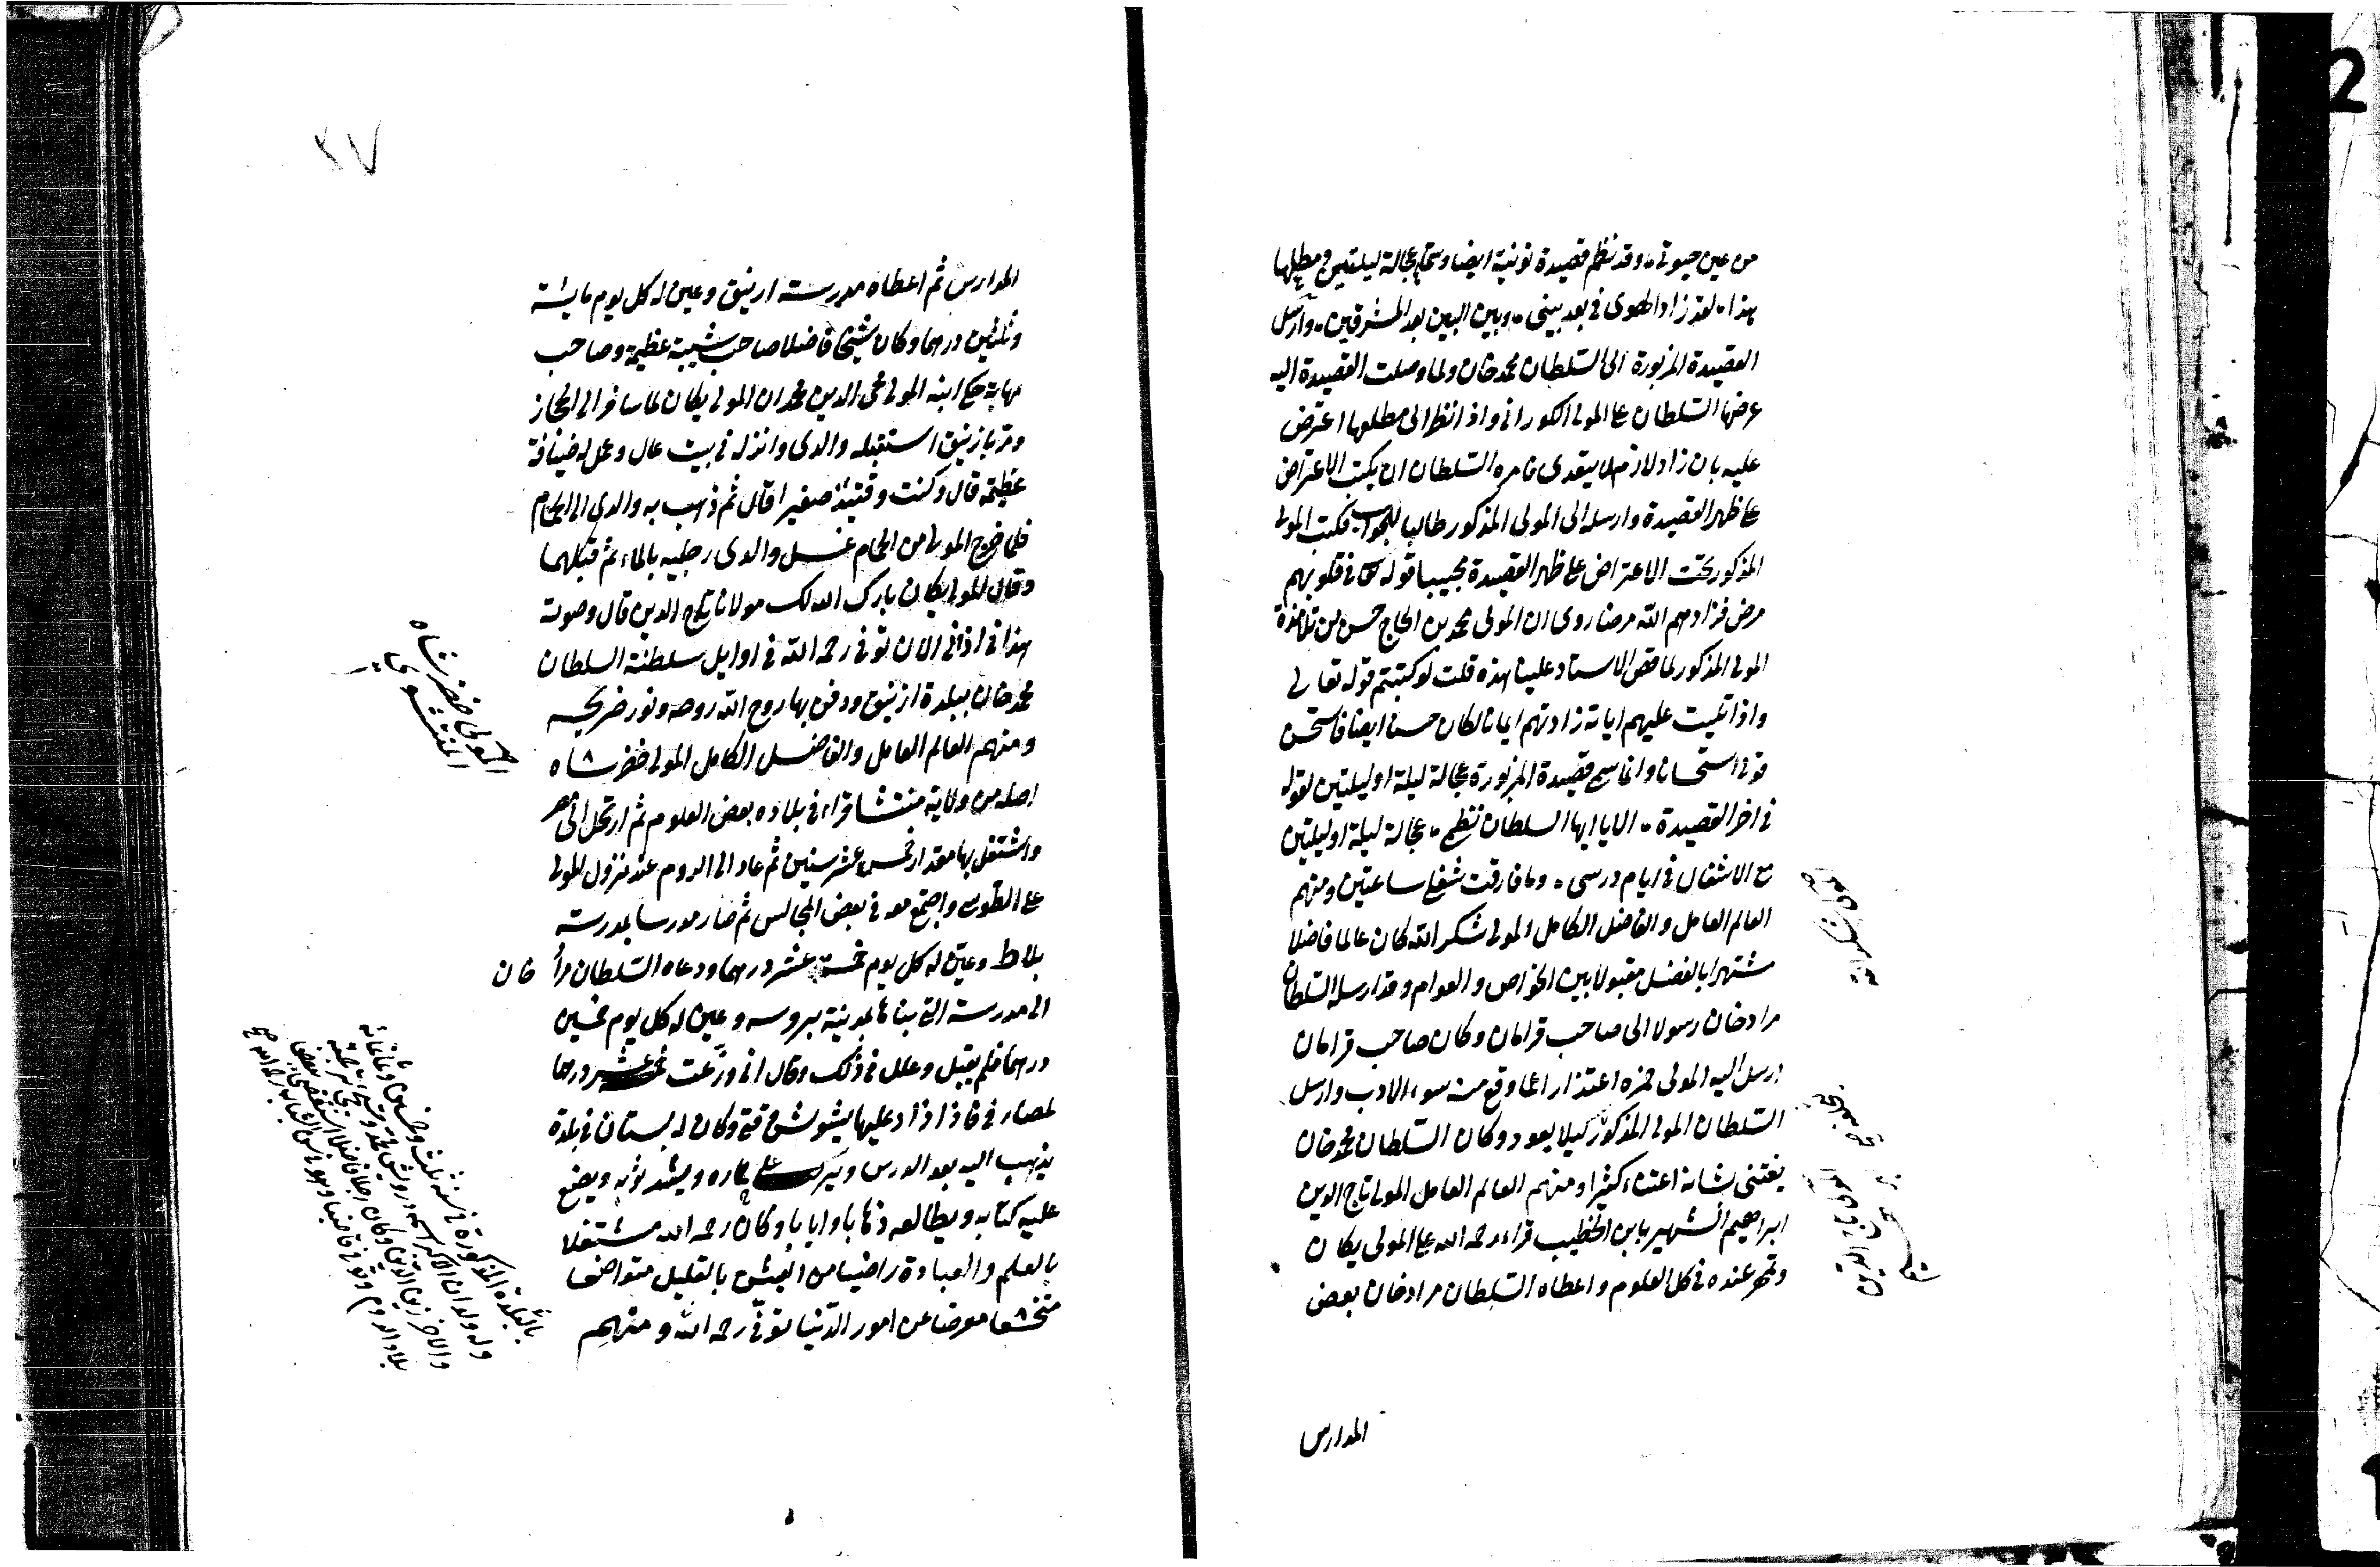 من عين حيوتى وقد نظم قصيدة نونية ايضا وسماها عجالة ليلتين ومطلعها
هذا لقد زاد الهوى فى بعد بينى وبين البين بعد المشرقين وارسل
القصيدة المزبورة الى السلطان محمد خان ولما وصلت القصيدة اليه
عرضها السلطان على المولى الكورانى واذ انظر الى مطلعها اعترض
عليه بان زاد لازم لا يتعدى فامره السلطان ان يكتب الاعتراض
على ظهر القصيدة وارسله الى المولى المذكور طالبا للجواب فكتب المولى
المذكور تحت الاعتراض على ظهر القصيدة مجيبا قوله تعالى فى قلوبهم
مرض فزادهم الله مرضا روى ان المولى محمد بن الحاج حسن من تلامذة
المولى المذكور لما قص الاستاد علينا هذه قلت لو كتبتم قوله تعالى
واذا تليت عليهم اياته زادتهم ايمانا لكان حسنا ايضا فاستحسن
قولى استحسانا وانما سمى قصيدة المزبورة عجالة ليلة او ليلتين لقوله
فى اخر القصيدة الا يا ايها السلطان نظمى عجالة ليلة او ليلتين
مع الاشغال فى ايام درسى وما فارقت شغلى ساعتين ومنهم
العالم العامل والفاضل الكامل المولى شكر الله كان عالما فاضلا
مشتهرا بالفضل مقبولا بين الخواص والعوام وقد ارسله السلطان
مراد خان رسولا الى صاحب قرامان وكان صاحب قرامان
ارسل اليه المولى حمزه اعتذارا عما وقع منه سوء الادب وارسل
السلطان المولى المذكور كيلا يعود وكان السلطان محمد خان
يعتنى بشانه اعتناء كثيرا ومنهم العالم العامل المولى تاج الدين
ابراهيم الشهير بابن الخطيب قراء رحمه الله على المولى يكان
وتمهر عنده فى كل العلوم واعطاه السلطان مراد خان بعض
المدارس
المولى شكر الله
٣٧
المدارس ثم اعطاه مدرسة ازنيق وعين له كل يوم مائة
وثلثين درهما وكان شيخا فاضلا صاحب شيبة عظيمة وصاحب
مهابة حكى ابنه المولى محى الدين محمد ان المولى يكان لما سافر الى الحجاز
ومر بازنيق استقبله والدى وانزله فى بيت عال وعمل له ضيافة
عظيمة قال وكنت وقتئذ صغيرا قال ثم ذهب به والدى الى الحمام
فلما خرج المولى من الحمام غسل والدى رجليه بالماء ثم قبلهما
وقال المولى يكان بارك الله لك مولانا تاج الدين قال وصوته
هذا فى اذنى الان توفى رحمه الله فى اوايل سلطنة السلطان
محمد خان ببلدة ازنيق ودفن بها روح الله روحه ونور ضريحه
ومنهم العالم العامل والفاضل الكامل المولى خضر شاه
اصله من ولاية منتشا قراء فى بلاده بعض العلوم ثم ارتحل الى مصر
واشتغل بها مقدار خمس عشر سنين ثم عاد الى الروم عند نزول المولى
على الطوسى واجتمع معه فى بعض المجالس ثم صار مدرسا بمدرسة
بلاط وعين له كل يوم خمسة عشر درهما ودعاه السلطان مراد خان
الى مدرسة التى بناها بمدينة بروسه وعين له كل يوم خمسين
درهما فلم يقبل وعلل فى ذلك وقال انى وزعت خمسة عشر درهما
لمصارفى فاذا زاد عليها يشوش وقتى وكان له بستان فى بلدة
يذهب اليه بعد الدرس ويركب على حماره ويشد ثوبه ويضع
عليه كتابه ويطالعه ذهابا وايابا وكان رحمه الله مشتغلا
بالعلم والعبادة راضيا من العيش بالقليل متواضعا
متخشعا معرضا عن امور الدنيا توفى رحمه الله ومنهم
المولى خضر شاه
المنتشوى
بالبلدة المذكورة فى سنة ثلث وخمسين وثمانمائة